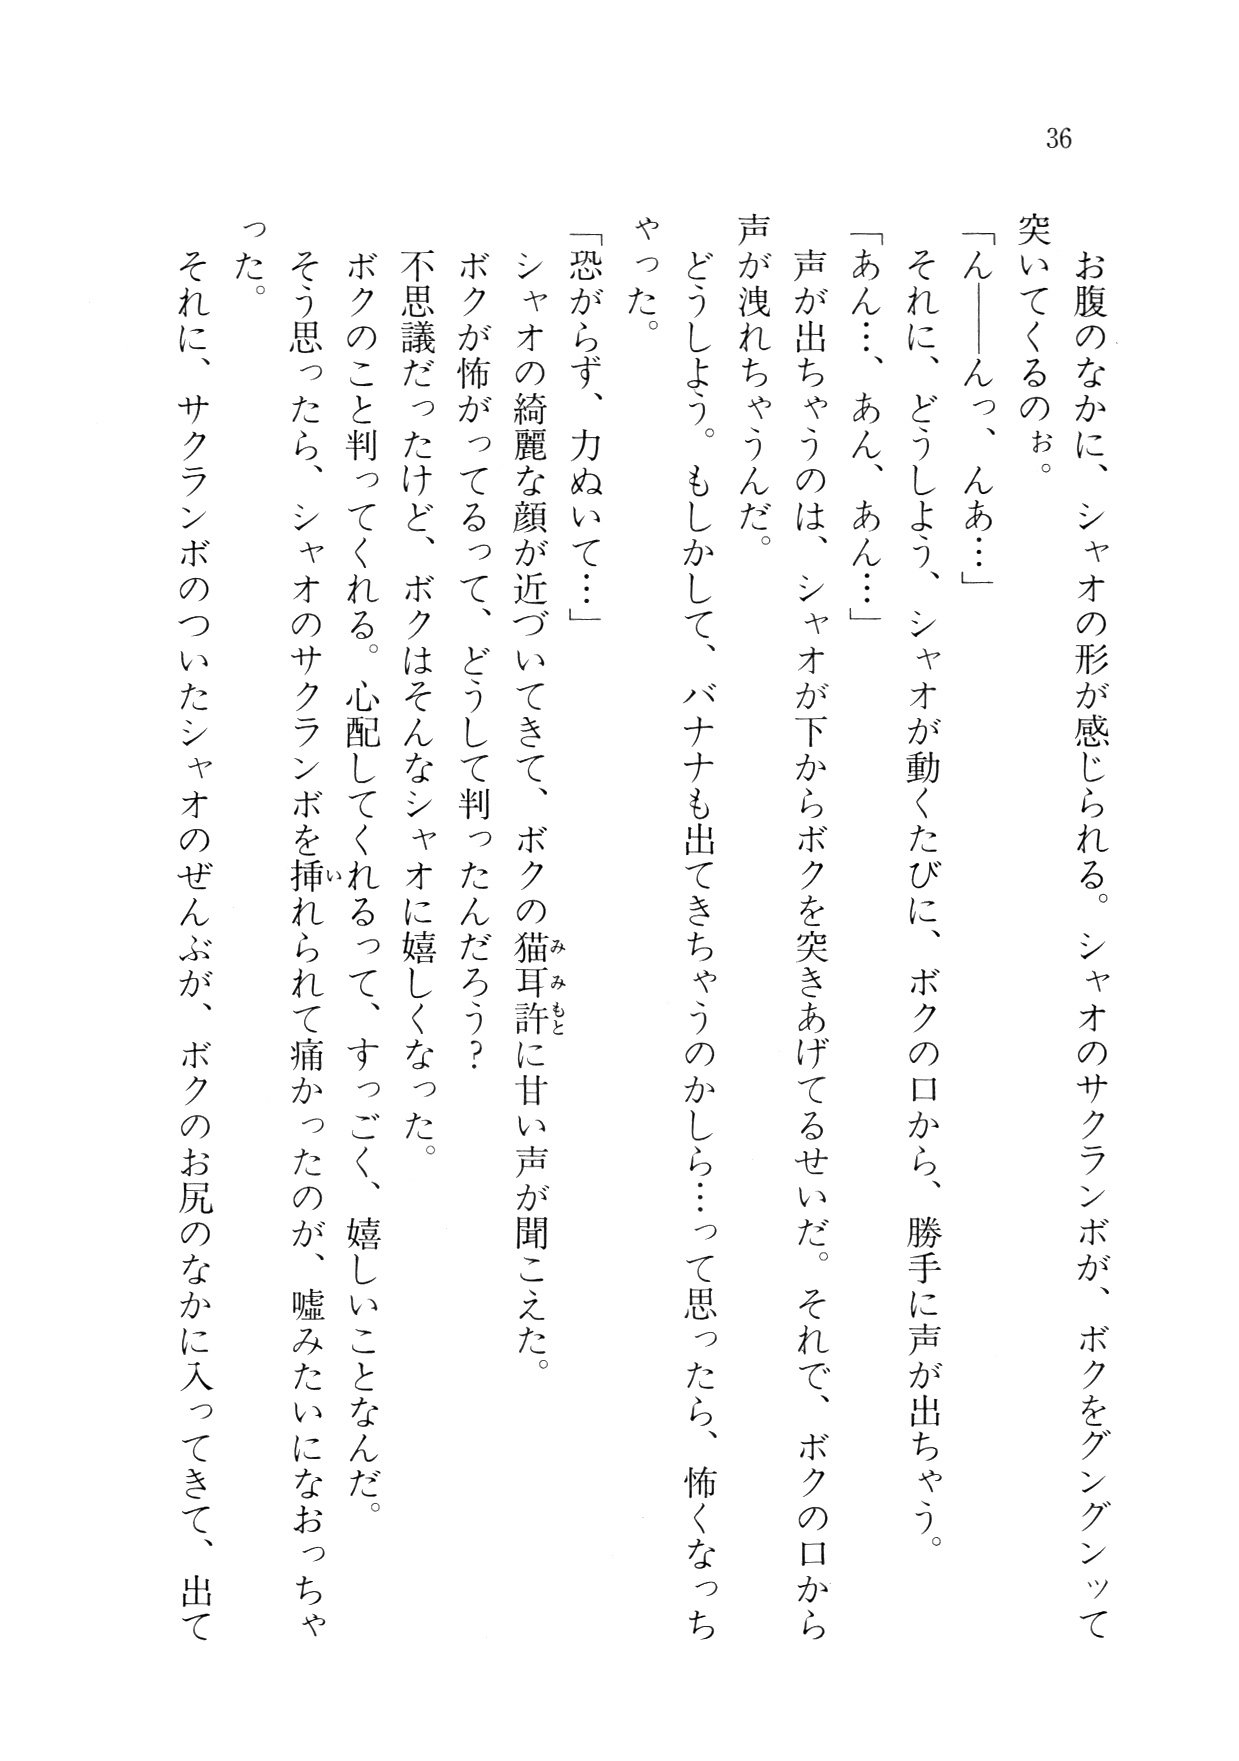 36
お腹のなかに、シャオの形が感じられる。シャオのサクランボが、ボクをグングンッて
突いてくるのぉ。
「ん――んっ、んあ…」
それに、どうしよう、シャオが動くたびに、ボクの口から、勝手に声が出ちゃう。
「あん…、あん、あん…」
声が出ちゃうのは、シャオが下からボクを突きあげてるせいだ。それで、ボクの口から
声が洩れちゃうんだ。
どうしよう。もしかして、バナナも出てきちゃうのかしら…って思ったら、怖くなっち
ゃった。
「恐がらず、力ぬいて…」
シャオの綺麗な顔が近づいてきて、ボクの猫耳許に甘い声が聞こえた。
ボクが怖がってるって、どうして判ったんだろう?
不思議だったけど、ボクはそんなシャオに嬉しくなった。
ボクのこと判ってくれる。心配してくれるって、すっごく、嬉しいことなんだ。
そう思ったら、シャオのサクランボを挿れられて痛かったのが、嘘みたいになおっちゃ
った。
それに、サクランボのついたシャオのぜんぶが、ボクのお尻のなかに入ってきて、出て